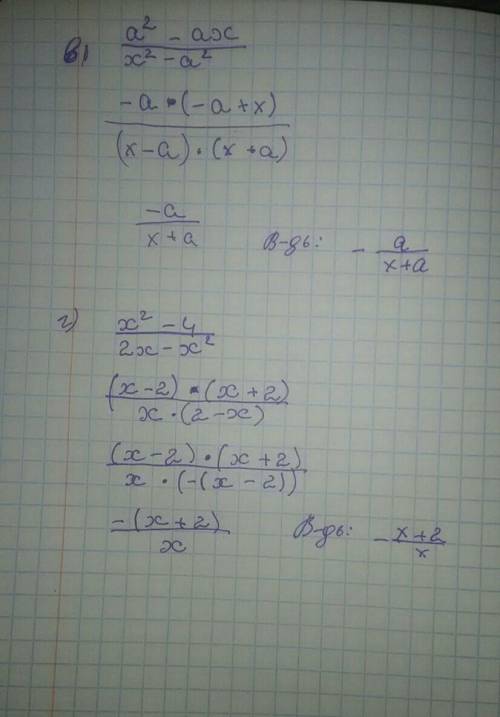 в) a² - ax / x² - a²
-a · (-a + x) / (x - a) · (x + a)
-a / x + a    В-дь: - a / x + a
г) x² - 4 / 2x - x²
(x - 2) · (x + 2) / x · (2 - x)
(x - 2) · (x + 2) / x · (-(x - 2))
-(x + 2) / x    В-дь: - x + 2 / x